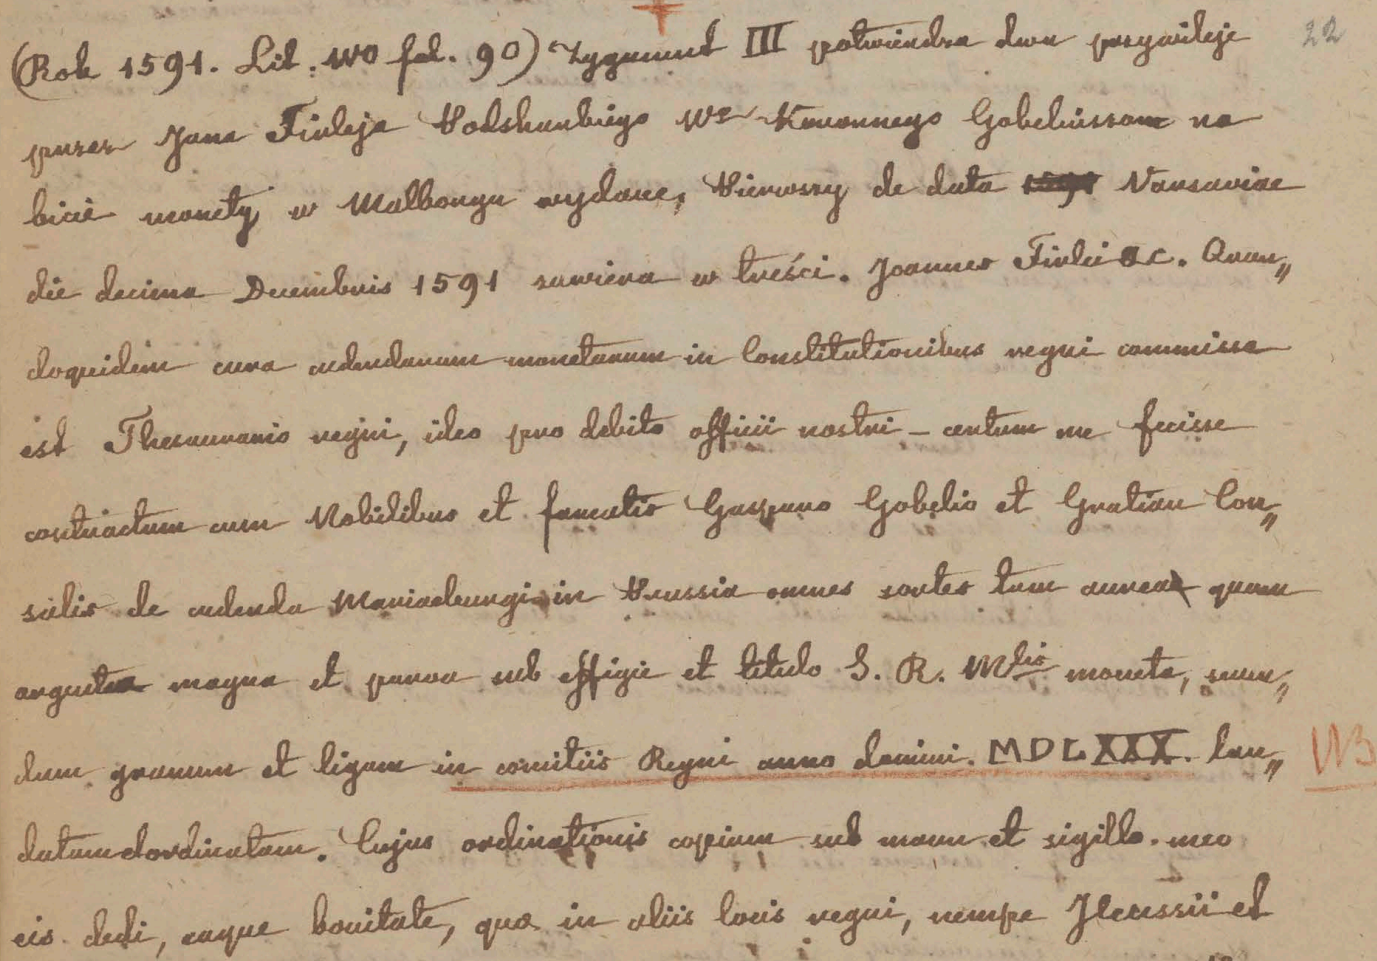 22
(Rok 1591. Lit. WO fol. 90) Zygmunt III potwierdza dwa przywileje
przez Jana Firleja Podskarbiego W° Koronnego Gobeliussom na
bicie monety w Malborgu wydane, Pierwszy de data Varsaviae
die decima Decembris 1591 zawiera w treści. Joannes Firlei ac. Quan„
doquidem cura cudendarum monetarum in Constitutionibus regni commissa
est Thesaurario regni, ideo pro debito officii nostri – certum me fecisse
contractum cum Nobilibus et famatis Gasparo Gobelio et Gratian Con„
salis de cudenda Mariaeburgi in Prussia omnes sortes tam aurea quam
argentea magna et parva sub effigie et titulo S. R. Mtis moneta, secun„
dum granum et ligam in comitiis Regni anno domini. MDLXXX. lau„
datam et ordinatam. Cujus ordinationis copiam sub manu et sigillo meo
NB
eis dedi, eaque bonitate, qua in aliis locis regni, nempe Ilcussii et